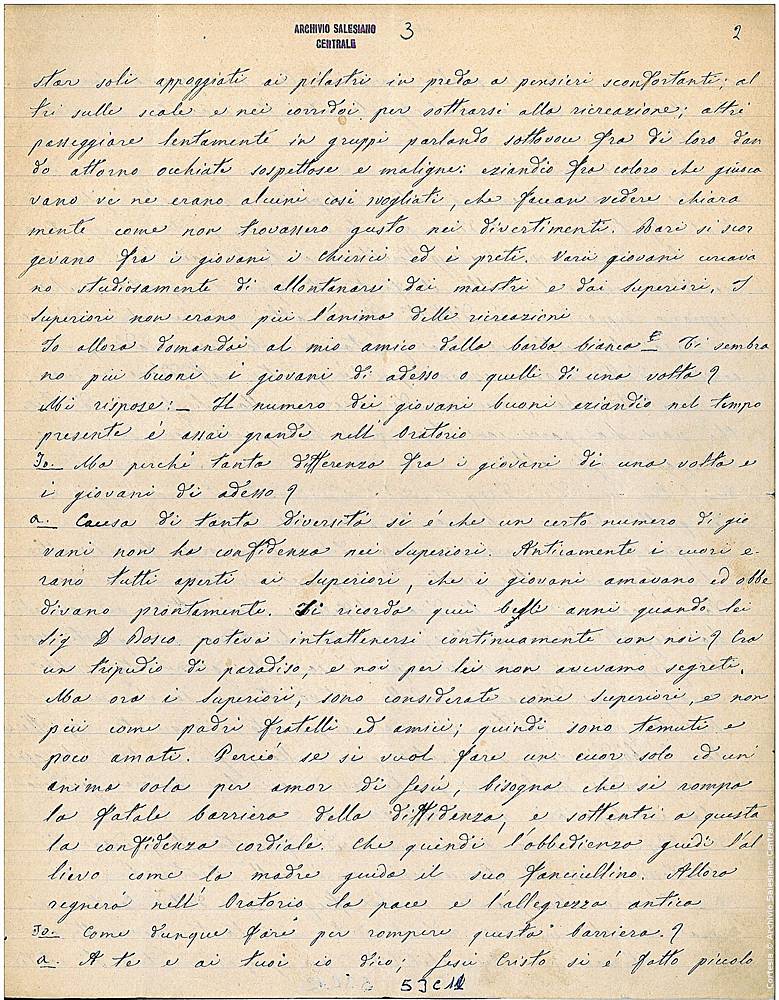 ARCHIVIO SALESIANO
CENTRALE
3
2
star soli appoggiati ai pilastri in preda a pensieri sconfortanti; al
tri sulle scale e nei corridoi per sottrarsi alla ricreazione; altri
passeggiare lentamente in gruppi parlando sottovoce fra di loro dan
do attorno occhiate sospettose e maligne: eziandio fra coloro che giuoca
vano ve ne erano alcuni così svogliati, che facean vedere chiara
mente come non trovassero gusto nei divertimenti. Rari si scor
gevano fra i giovani i chierici ed i preti. Varii giovani cercava
no studiosamente di allontanarsi dai maestri e dai superiori. I
superiori non erano più l'anima delle ricreazioni
Io allora domandai al mio amico dalla barba bianca – Ti sembra
no più buoni i giovani di adesso o quelli di una volta?
Mi rispose: – Il numero dei giovani buoni eziandio nel tempo
presente è assai grande nell'Oratorio
Io. – Ma perchè tanta differenza fra i giovani di una volta e
i giovani di adesso?
a. – Causa di tanta diversità si è che un certo numero di gio
vani non ha confidenza nei Superiori. Anticamente i cuori e-
rano tutti aperti ai Superiori, che i giovani amavano ed obbe
divano prontamente. Si ricorda quei begli anni quando lei
Sig D Bosco poteva intrattenersi continuamente con noi? Era
un tripudio di paradiso, e noi per lei non avevamo segreti.
Ma ora i Superiori, sono considerati come Superiori, e non
più come padri fratelli ed amici; quindi sono temuti e
poco amati. Perciò se si vuol fare un cuor solo ed un'
anima sola per amor di Gesù, bisogna che si rompa
la fatale barriera della diffidenza, e sottentri a questa
la confidenza cordiale. Che quindi l'obbedienza guidi l'al
lievo come la madre guida il suo fanciullino. Allora
regnerà nell'Oratorio la pace e l'allegrezza antica
Io. – Come dunque fare per rompere questa barriera.?
a. – A te e ai tuoi io dico; Gesù Cristo si è fatto piccolo
Cortesia © Archivio Salesiano Centrale